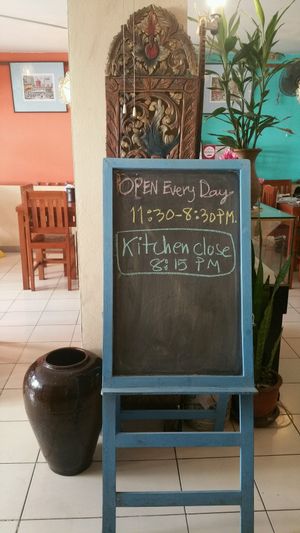 OPEN Every Day
11:30-8:30PM.
Kitchen close
8:15 PM